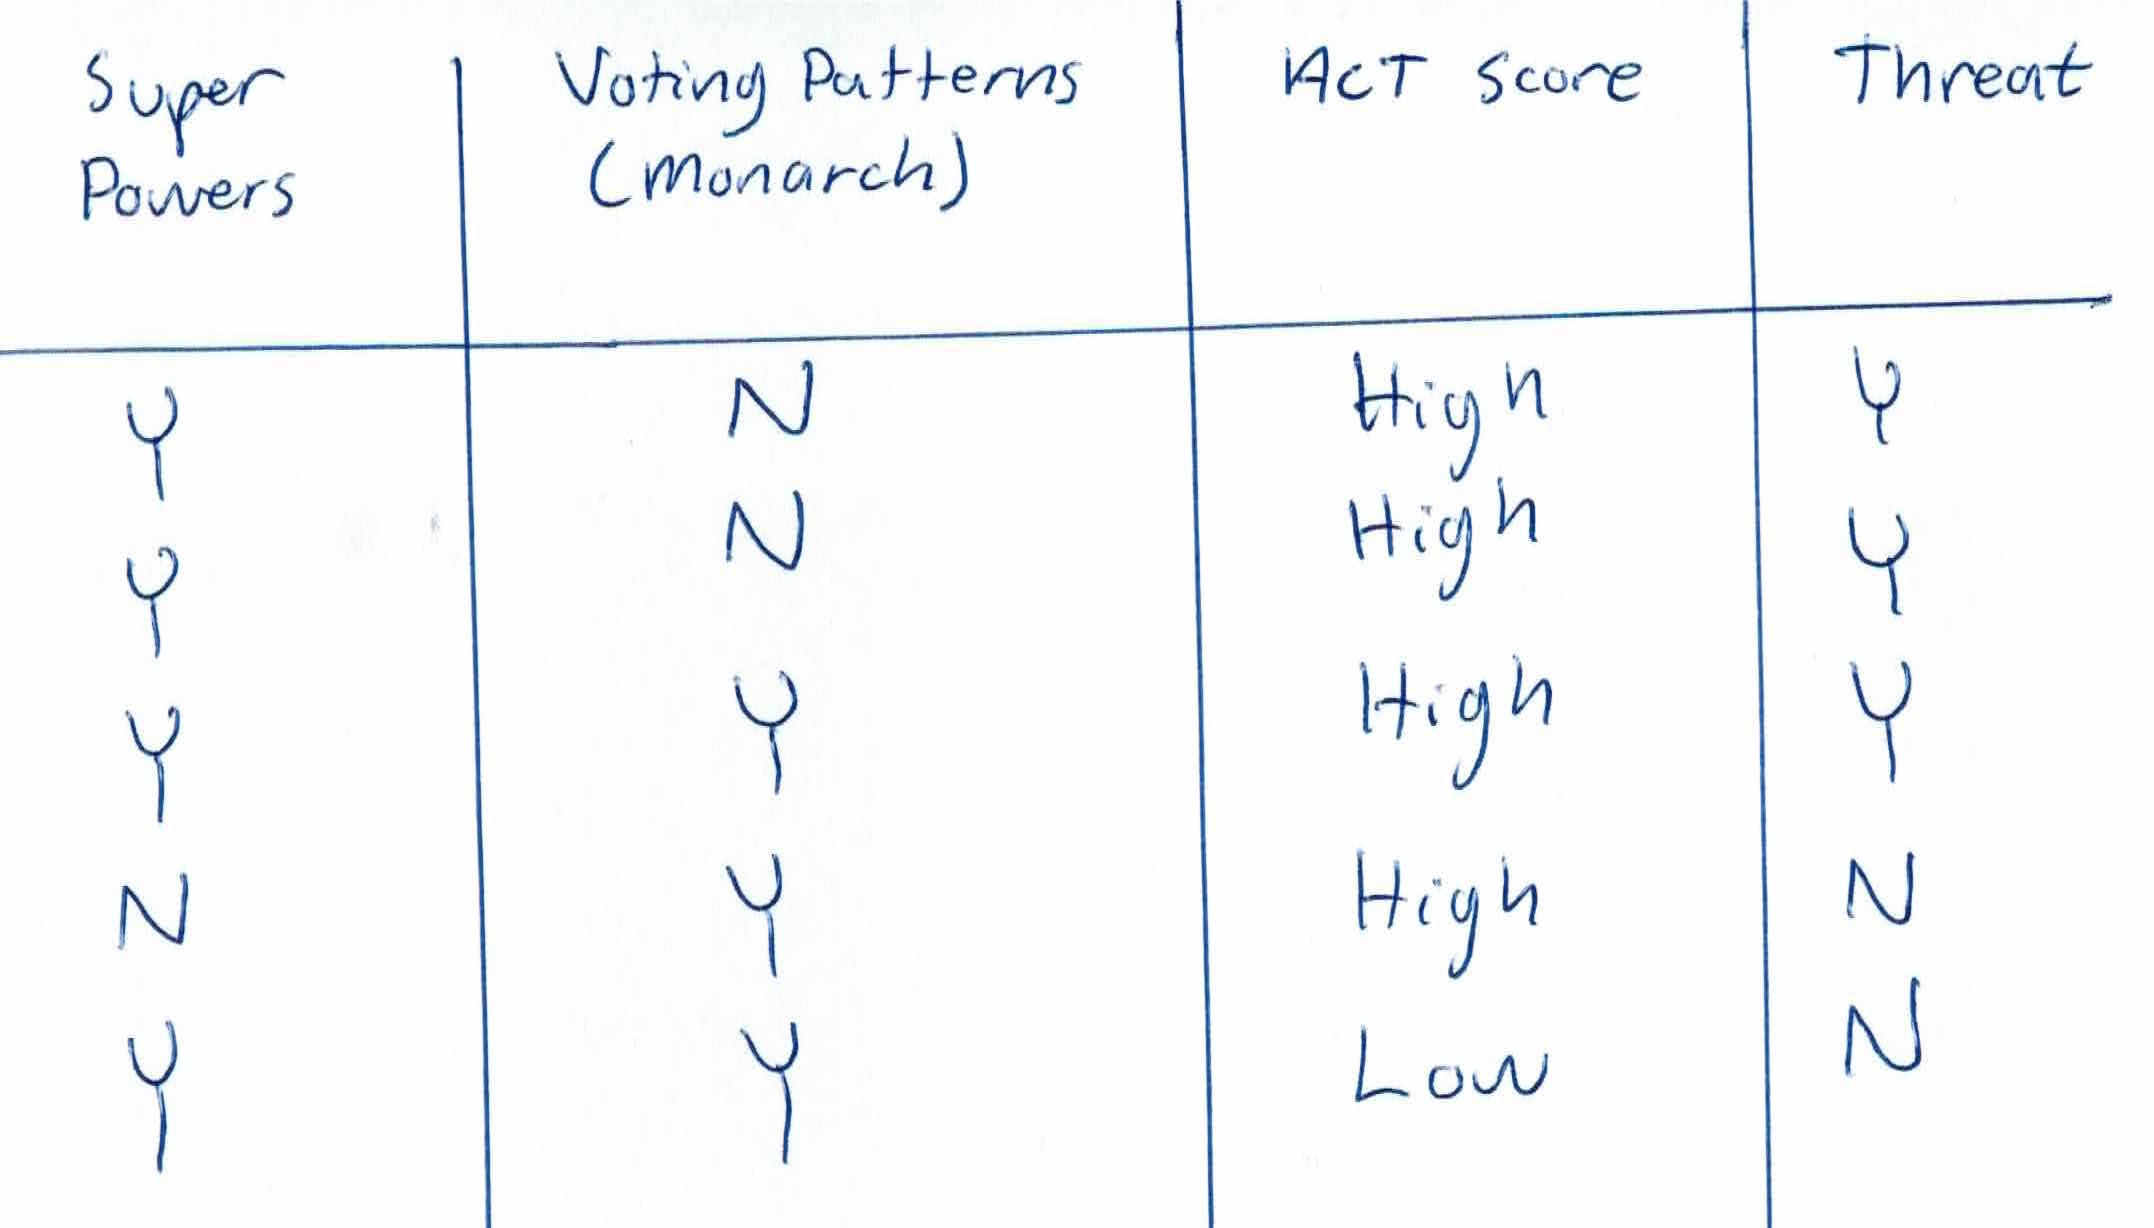 Super Powers | Voting Patterns (Monarch) | ACT Score | Threat
Y | N | High | Y
Y | N | High | Y
Y | Y | High | Y
N | Y | High | N
Y | Y | Low | N